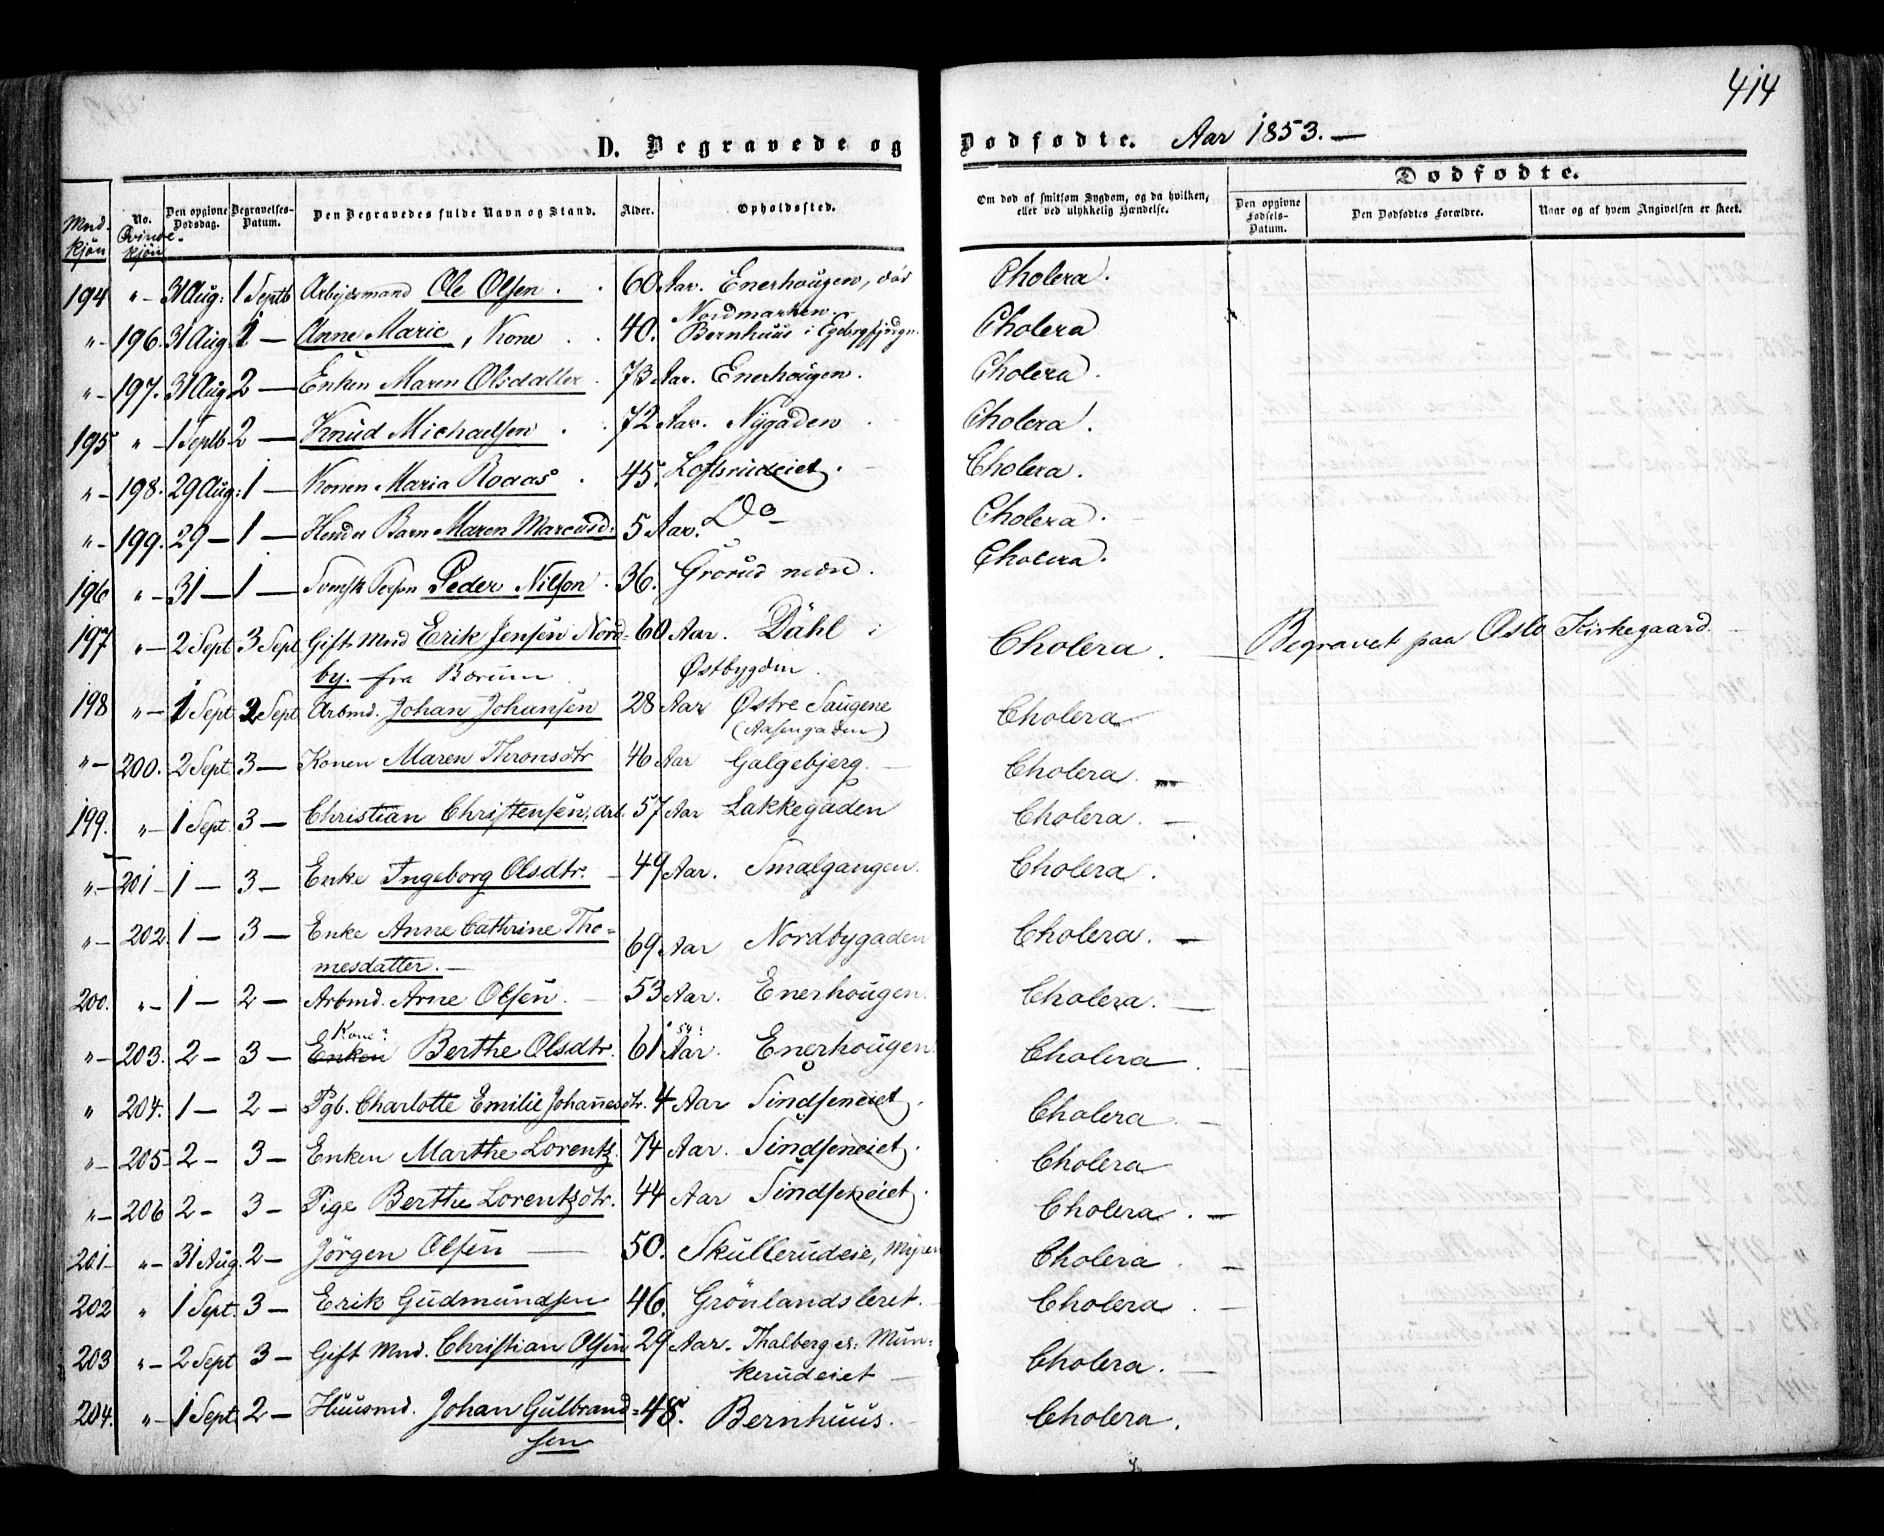 414
D. Begravede og Dødfødte. Aar 1853. —
Dødfødte.
Mnd-kjøn
No. Qvinde-kjøn
Den opgivne Dødsdag.
Begravelses-Datum.
Den Begravedes fulde Navn og Stand.
Alder.
Opholdssted.
Om død af smitsom Sygdom, og da hvilken, eller ved ulykkelig Hændelse.
Den opgivne Fødsels-Datum.
Den Dødfødtes Forældre.
Naar og af hvem Angivelsen er skeet.
194 " — 31 Aug: 1 Septb Arbeidsmand Ole Olsen . . 60 Aar. Enerhougen, Cholera.
Nordmarken
" — 196. 31 Aug: 1 — Anne Marie, Kone . . 40. Bernhuus i Cholera
" — 197. 31 Aug 2 — Enken Maren Olsdatter . 73 Aar. Enerhougen. Cholera.
195 " — 1 Septb 2 — Knud Michaelsen . . 72 Aar. Nygaden Cholera.
" — 198. 29 Aug: 1 — Konen Maria Roaas . 45. Loftsrudeiet. Cholera.
" — 199. 29 — 1 — Hendes Barn Maren Marcusd: 5 Aar. Do Cholera.
196 " — 31 — 1 — Svensk Person Peder Nilson . 36. Grorud Cholera.
197 " — 2 Sept 3 Sept Gift Mnd Erik Jensen Nord= 60 Aar. Dahl i Cholera. Begravet paa Oslo Kirkegaard.
by. fra Bærum Østbygden
198 " — 1 Sept. 2 Sept Arbmd. Johan Johansen 28 Aar Østre Saugene Cholera
(Aasengaden)
" — 200. 2 Sept. 3 — Konen Maren Thronsdtr 46 Aar Galgebjerg. — Cholera. —
199. " — 1 Sept. 3 — Christian Christensen, Arb. 57 Aar Lakkegaden Cholera. —
" — 201 — 1 — 3 — Enke Ingeborg Olsdtr. — 49 Aar. Smalgangen. Cholera.
" — 202 1 — 3 — Enke Anne Cathrine Tho= 69 Aar Nordbygaden Cholera. —
mesdatter. —
200. " — 1 — 2 — Arbmd. Arne Olsen. — 53 Aar. Enerhougen. Cholera. —
Kone: 59:
" — 203. 2 — 3 — Enken Berthe Olsdtr. 61 Aar. Enerhougen. Cholera
" 204. 1 — 2 — Pgb. Charlotte Emilie Johannesdtr. 4 Aar Sindseneiet. Cholera —
" — 205 — 2 — 3 — Enken Marthe Lorentz. 74 Aar. Sindseneiet. Cholera
" — 206 2 — 3 — Pige Berthe Lorentzdtr. 44 Aar Sindseneiet. Cholera. —
201 — " — 31 Aug. 2 — Jörgen Olsen — 50. Skullerudeie, Myren Cholera. —
202 " 1 Sept. 3 — Erik Gudmundsen 46. Grönlandsleret. Cholera. —
203 " — 2 Sept 3 — Gift Mnd. Christian Olsen 29 Aar. Thalberg Mun= Cholera. —
kerudeiet —
204. " — 1 Sept. 2 — Huusmd. Johan Gulbrand= 48. Bernhuus. Cholera.
sen